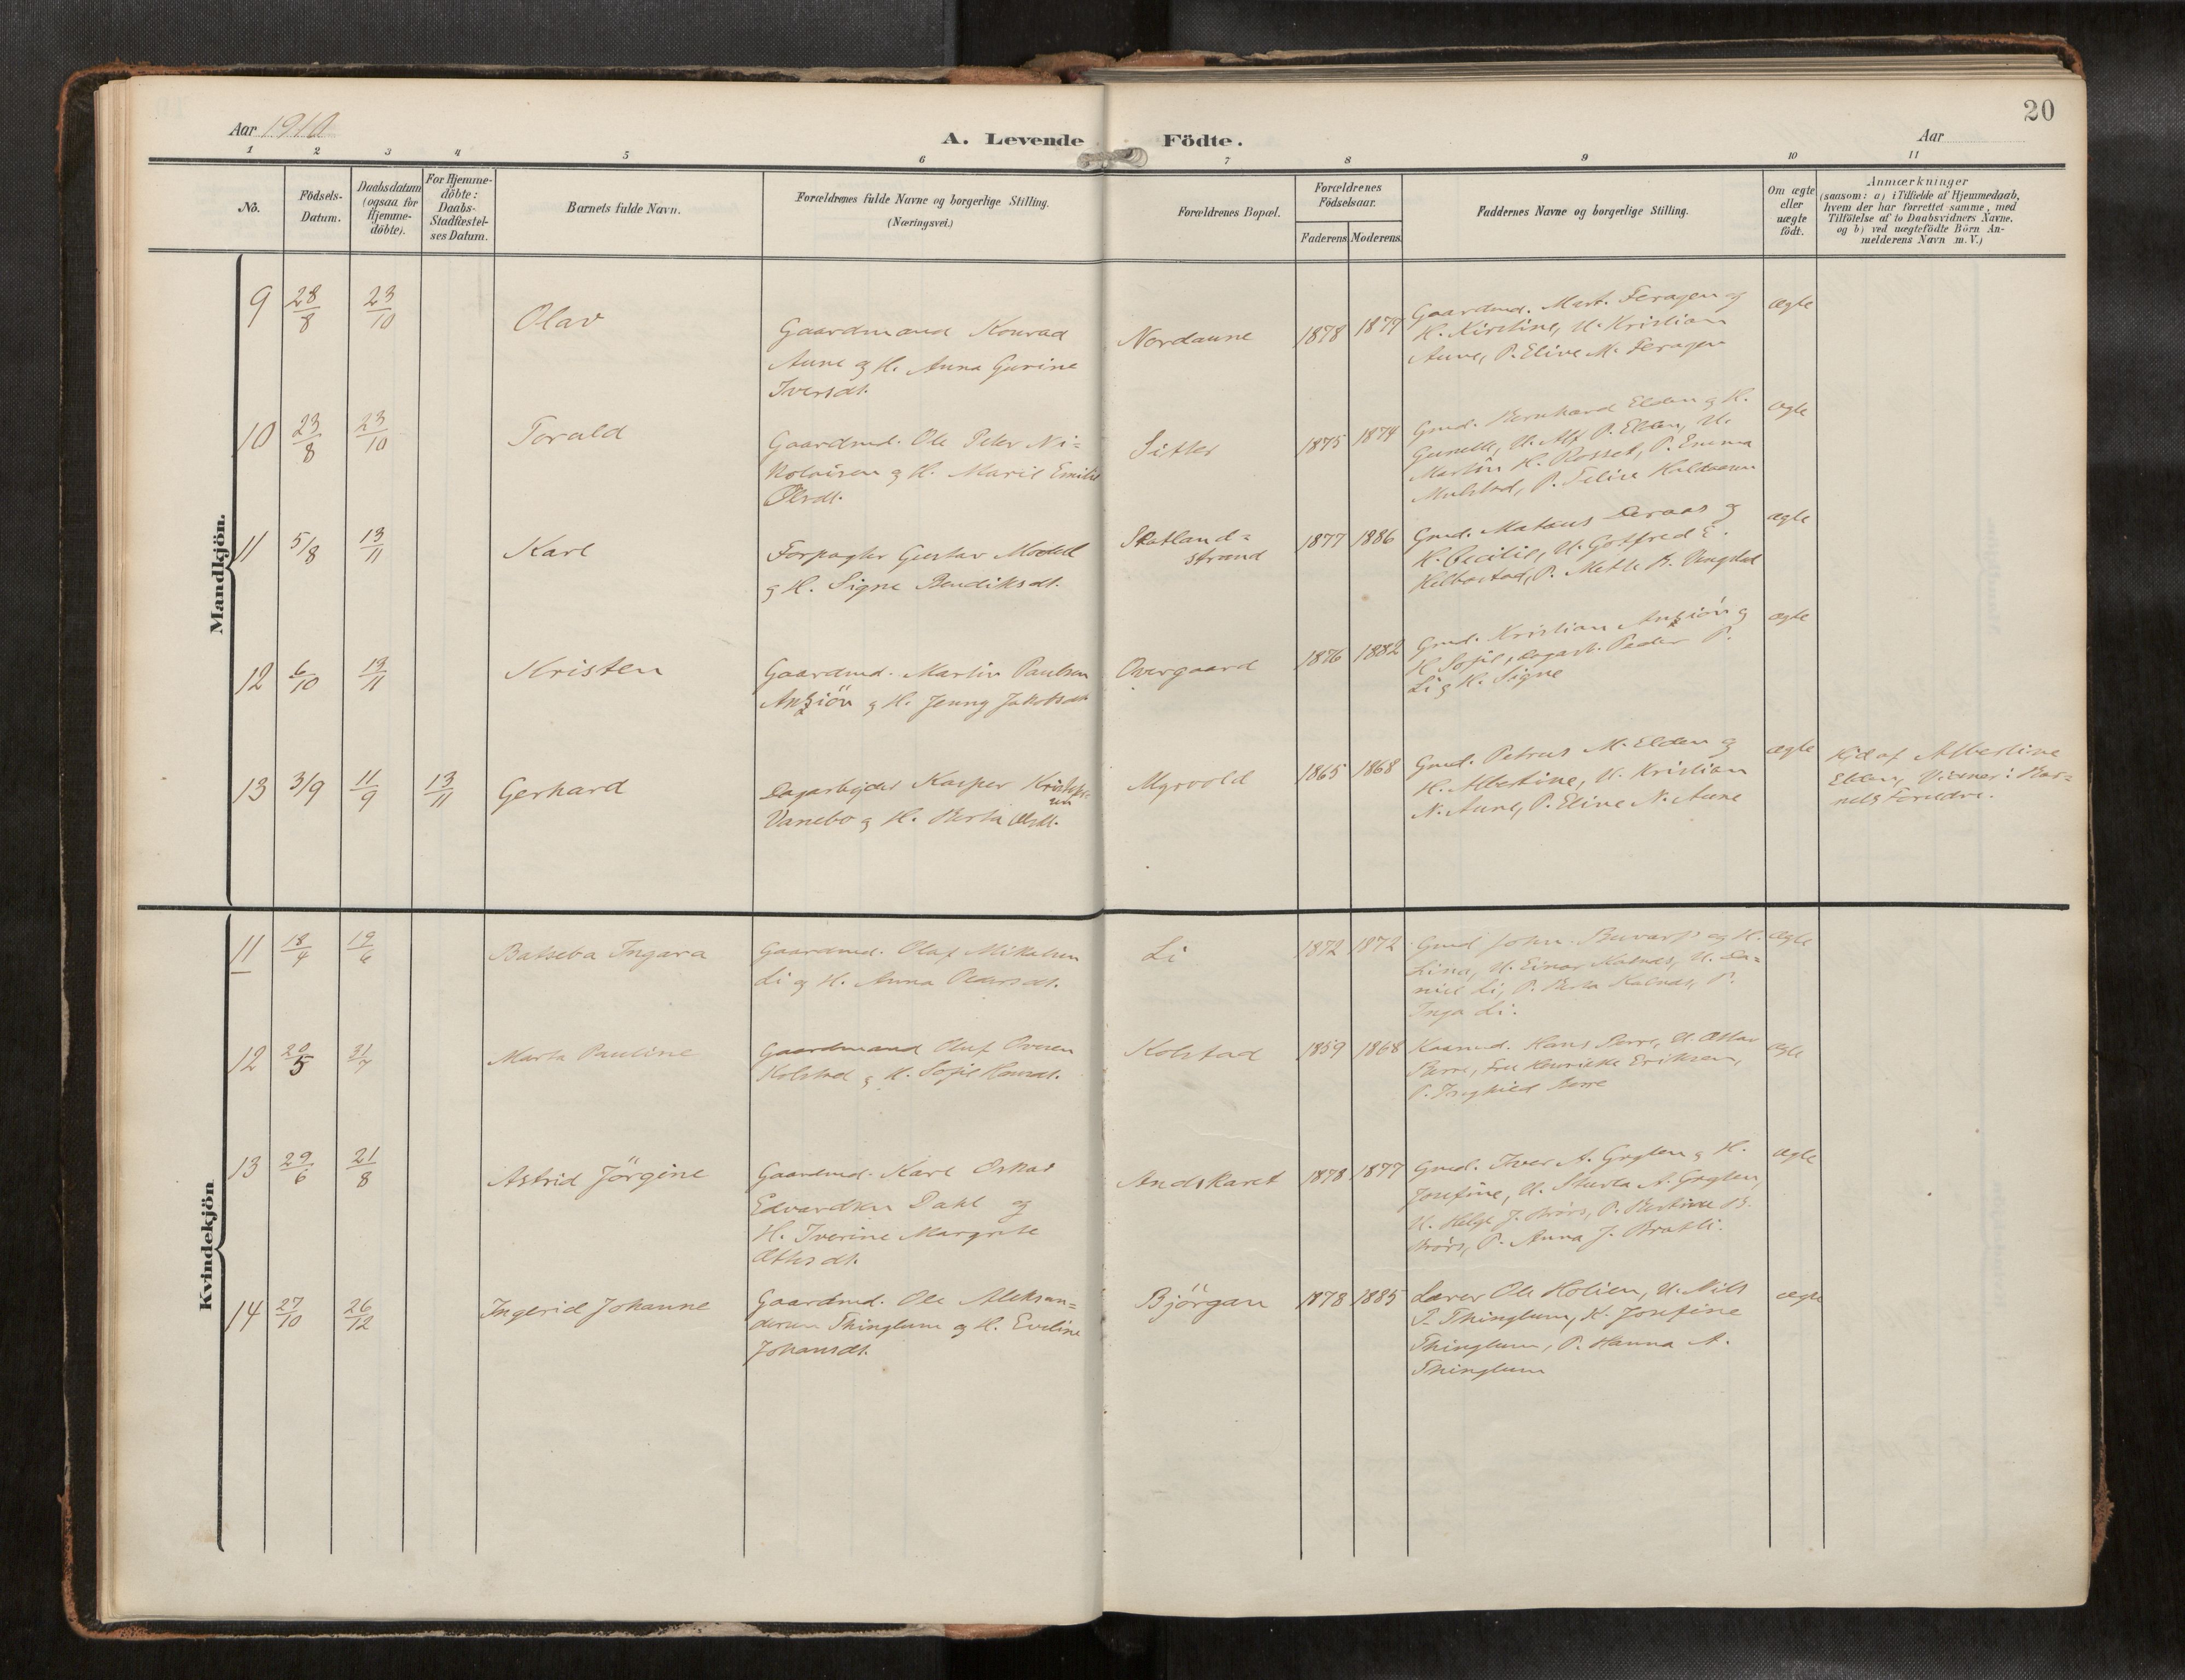 20
Aar 1910
A. Levende Födte.
Aar
1 2 3 4 5 6 7 8 9 10 11
No.
Födsels-
Datum.
Daabsdatum
(ogsaa for
Hjemme-
döbte).
For Hjemme-
döbte:
Daabs-
Stadfæstel-
ses Datum.
Barnets fulde Navn.
Forældrenes fulde Navne og borgerlige Stilling.
(Næringsvei.)
Forældrenes Bopæl.
Forældrenes
Födselsaar.
Faderens
Moderens.
Faddernes Navne og borgerlige Stilling.
Om ægte
eller
uægte
födt.
Anmærkninger
(saasom: a) i Tilfælde af Hjemmedaab,
hvem der har forrettet samme, med
Tilföielse af to Daabsvidners Navne,
og b) ved uægtefödte Börn An-
melderens Navn m. V.)
Mandkjön.
9 28/8 23/10 Olav
Gaardmand Konrad
Aune og H. Anna Gurine
Iversdt.
Nordaune 1878 1877
Gaardmd. Mart. Feragen og
H. Kirstine, U. Kristian
Aune, P. Eline M. Feragen
ægte
10 23/8 23/10 Torald
Gaardmd. Ole Peter Ni=
kolaisen og H. Marie Emilie
Olsdt.
Sitter 1875 1874
Gmd. Bernhard Elden og H.
Gunelle, U. Alf P. Elden, U.
Martin H. Rosset, P. Emma
P.
ægte
11 5/8 13/11 Karl
Forpagter Gustav
og H. Signe Bendiksdt.
Statland=
strand 1877 1886
Gmd. Mataus Deraas og
H. Cecilie, U. Gotfred E.
P. Mette B.
ægte
12 6/10 13/11 Kristen
Gaardmd. Martin Paulsen
Anziön og H. Jenny Jakobsdt.
Overgaard 1876 1882
Gmd. Kristian Anziön og
H. Sofie, Dagarb. Peder P.
Li og H. Signe
ægte
13 3/9 11/9 13/11 Gerhard
Dagarbejder Kasper Kristen-
sen
Vanebo og H. Berta Olsdt.
Myrvold 1865 1868
Gmd. Petrus M. Elden og
H. Albertine, U. Kristian
N. Aune, P. Eline N. Aune
ægte
Hjd af Albertine
Elden, Vidner: Bar=
nets Foreldre.
Kvindekjön
11 18/4 19/6 Batseba Ingara
Gaardmd. Olaf Mikalsen
Li og H. Anna Pedersdt.
Li 1872 1872
Gmd John. Buvarp og H.
Lina, U. Einar Kalnes, U. Da=
niel Li, P. Berta Kalnes, P.
Inga Li.
ægte
12 20/5 31/7 Marta Pauline
Gaardmand Oluf Ovesen
Kolstad og H. Sofie Hansdt.
Kolstad 1859 1868
Kaarmd. Hans Berre, U. Ottar
Berre, Fru Henrikke Eriksen,
P. Ingrid Berre
ægte
13 29/6 21/8 Astrid Jörgine
Gaardmd. Karl Oskar
Edvardsen Dahl og
H. Iverine Margrete
Andskaret 1878 1877
Gmd. Iver A. Gryten og H.
Josefine, U. Sturla A. Gryten,
U. Helge J. Brörs, P. Bertine B.
Brörs, P. Anna J. Brattli.
ægte
14 27/10 26/12 Ingerid Johanne
Gaardmd. Ole Aleksan=
dersen Thinglum og H. Eveline
Johansdt.
Björgan 1878 1885
Lærer Ole Holien, U. Nils
P. Thinglum, H. Josefine
Thinglum, P. Hanna A.
Thinglum
ægte